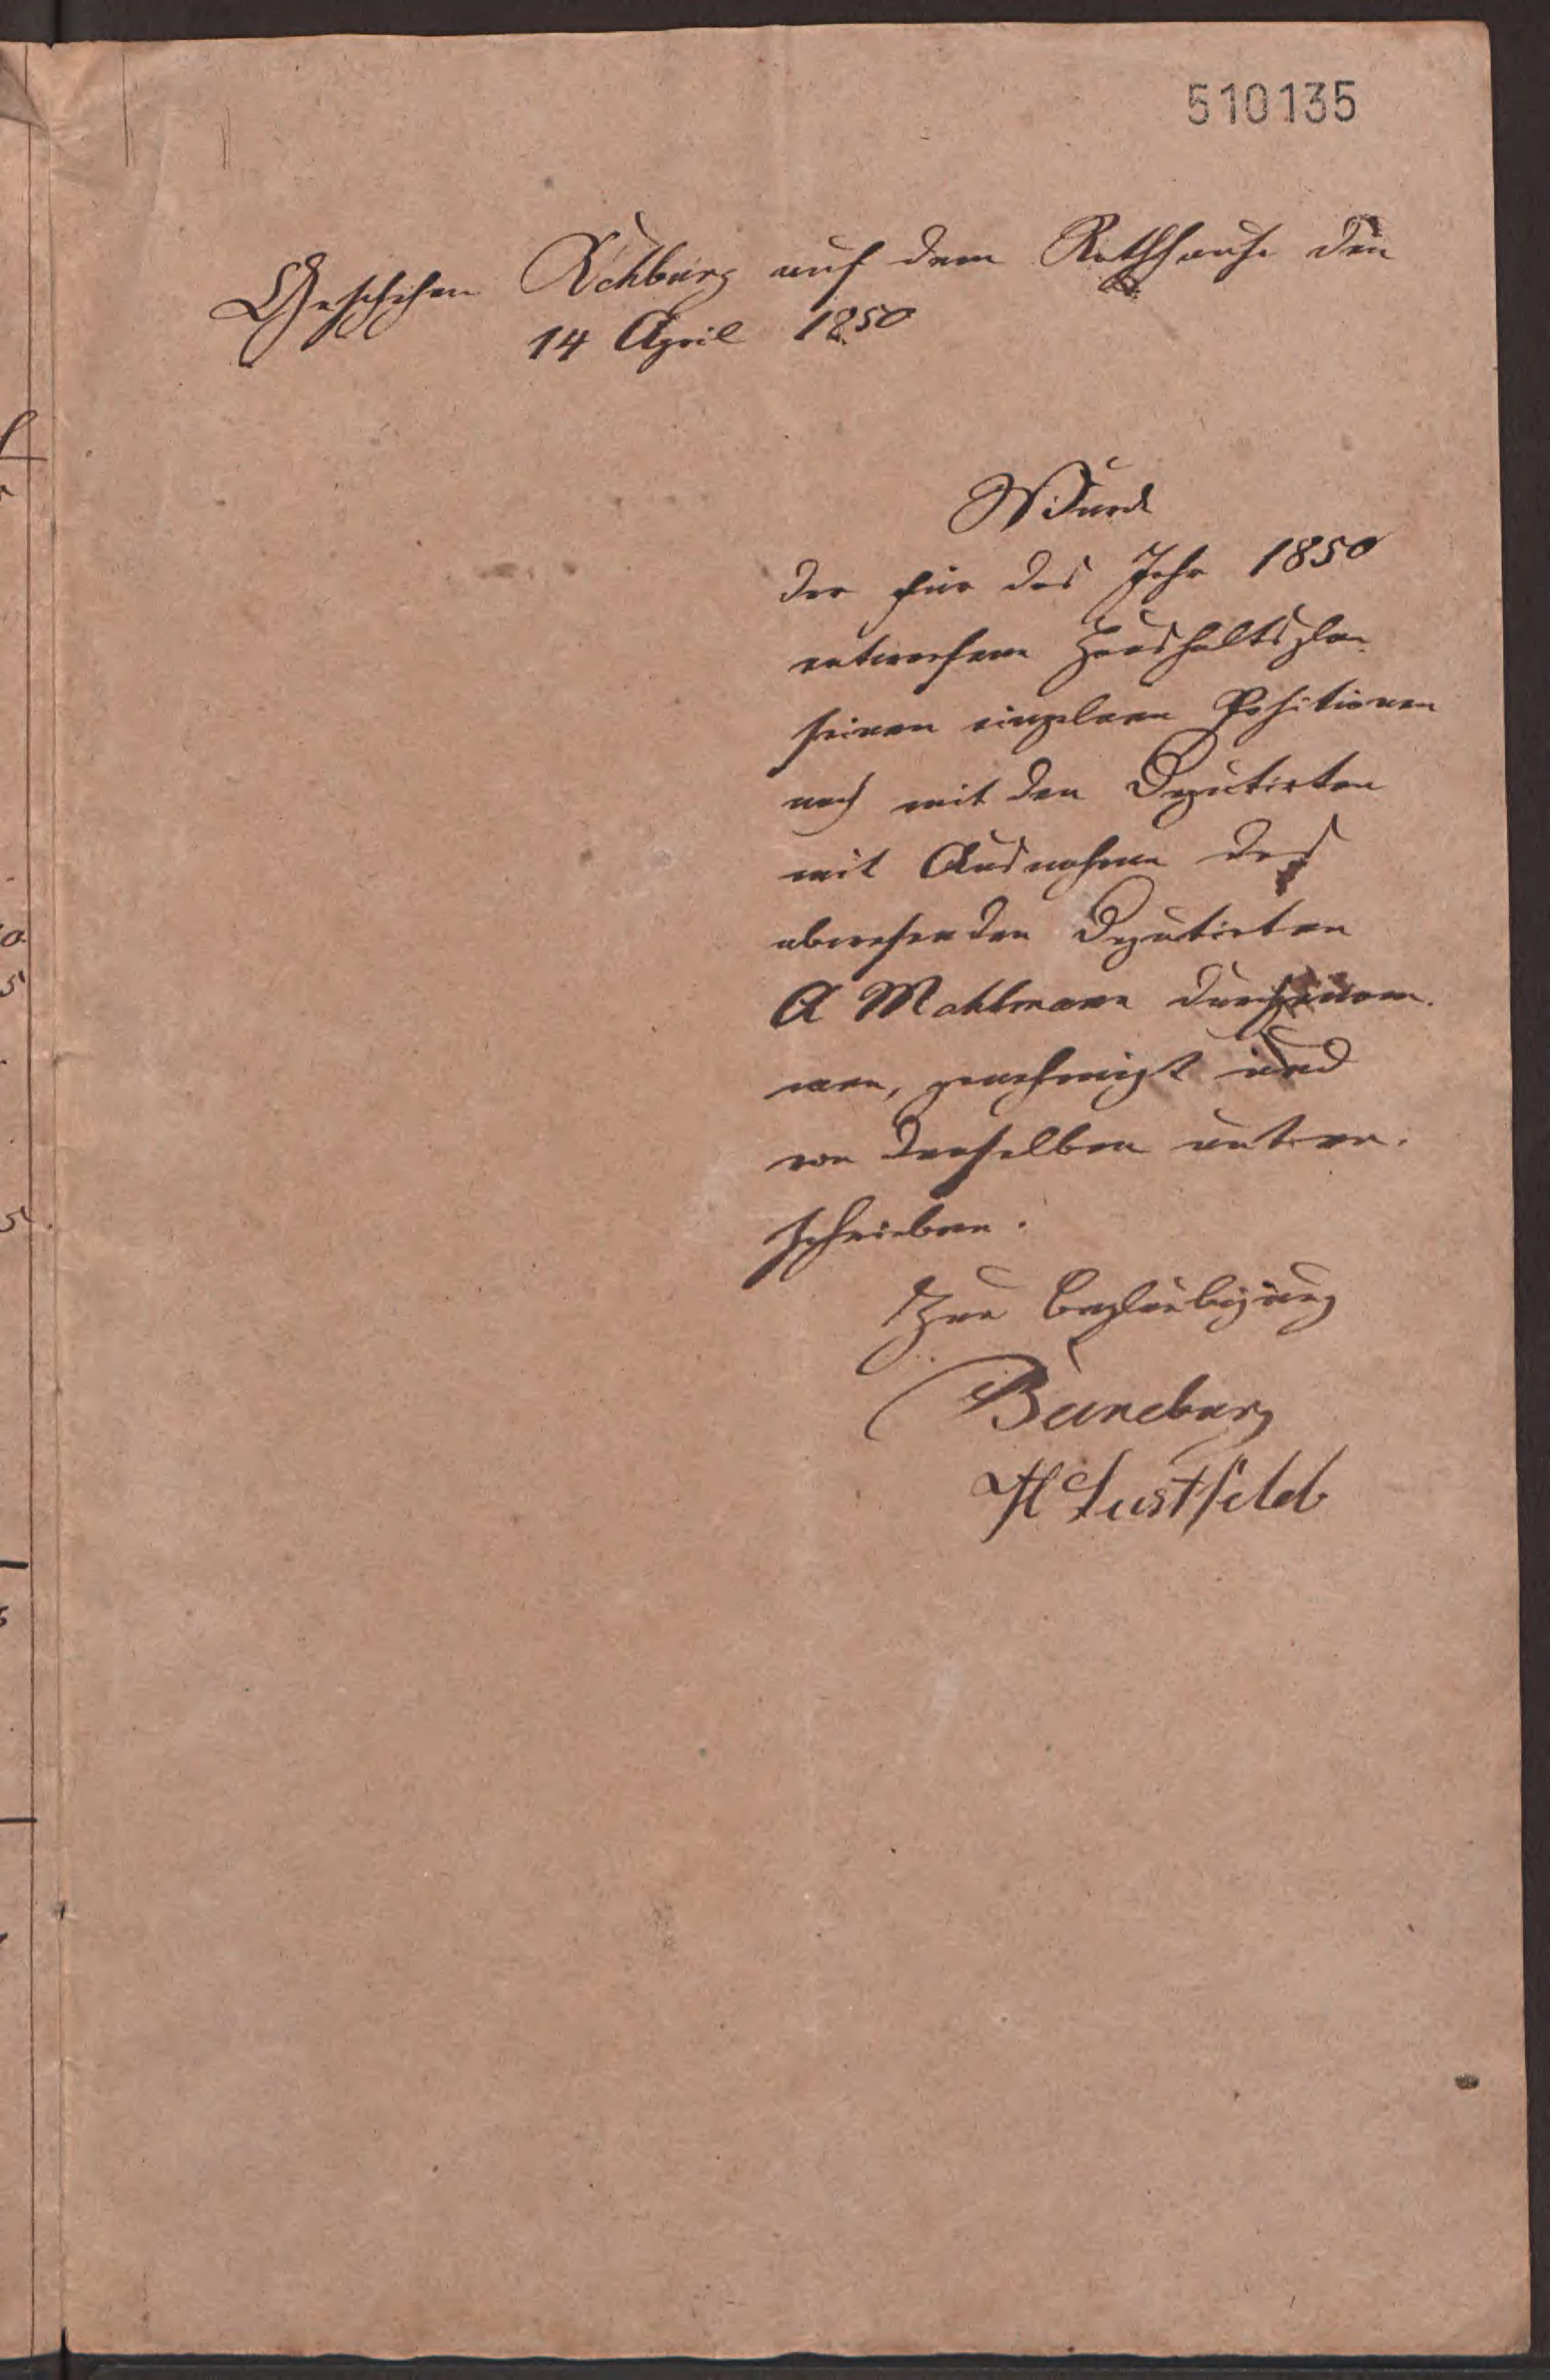 510135
Geschehen Rehburg auf dem Rathhause den
14 April 1850
Wurde
der für das Jahr 1850
entworfene Haushaltsplan
seinen einzelnen Positionen
nach mit den Deputirten
mit Ausnahme des
abwesenden Deputirten
A Mahlmann durchgenom-
men, genehmigt und
von denselben unter-
schrieben.
Zur Beglaubigung
Buneburg
H Lustfeld